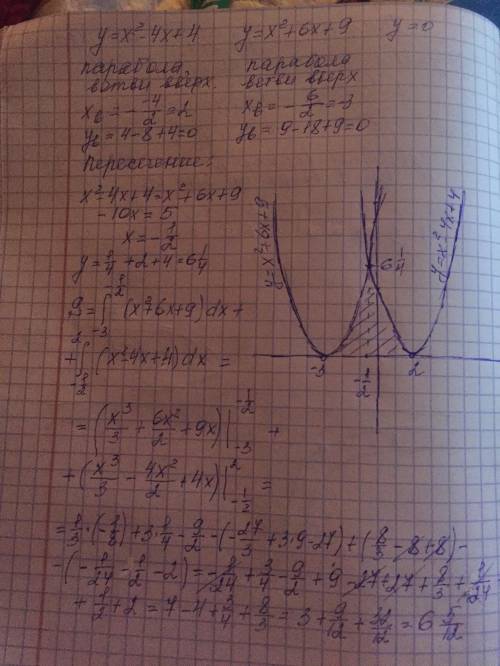 y=x²-4x+4   y=x²+6x+9   y=0
парабола,   парабола
ветви вверх.   ветви вверх
x_в = -\frac{-4}{2} = 2   x_в = -\frac{6}{2} = -3
y_в = 4-8+4=0   y_в = 9-18+9=0
Пересечение:
x²-4x+4=x²+6x+9
-10x = 5
x = -\frac{1}{2}
y = \frac{1}{4} + 2 + 4 = 6\frac{1}{4}
S = \int_{-3}^{-\frac{1}{2}} (x²+6x+9)dx +
+ \int_{-\frac{1}{2}}^{2} (x²-4x+4)dx =
= (\frac{x^3}{3} + \frac{6x^2}{2} + 9x)|_{-3}^{-\frac{1}{2}} +
+ (\frac{x^3}{3} - \frac{4x^2}{2} + 4x)|_{-\frac{1}{2}}^{2} =
= \frac{1}{3}·(-\frac{1}{8}) + 3·\frac{1}{4} - \frac{9}{2} - (-\frac{27}{3} + 3·9 - 27) + (\frac{8}{3} - 8 + 8) -
- (-\frac{1}{24} - \frac{1}{2} - 2) = -\frac{1}{24} + \frac{3}{4} - \frac{9}{2} + 9 - 27 + 27 + \frac{8}{3} + \frac{1}{24}
+ \frac{1}{2} + 2 = 7 - 4 + \frac{3}{4} + \frac{8}{3} = 3 + \frac{9}{12} + \frac{32}{12} = 6\frac{5}{12}
y=x²+6x+9
6\frac{1}{4}
y=x²-4x+4
-3
-\frac{1}{2}
2